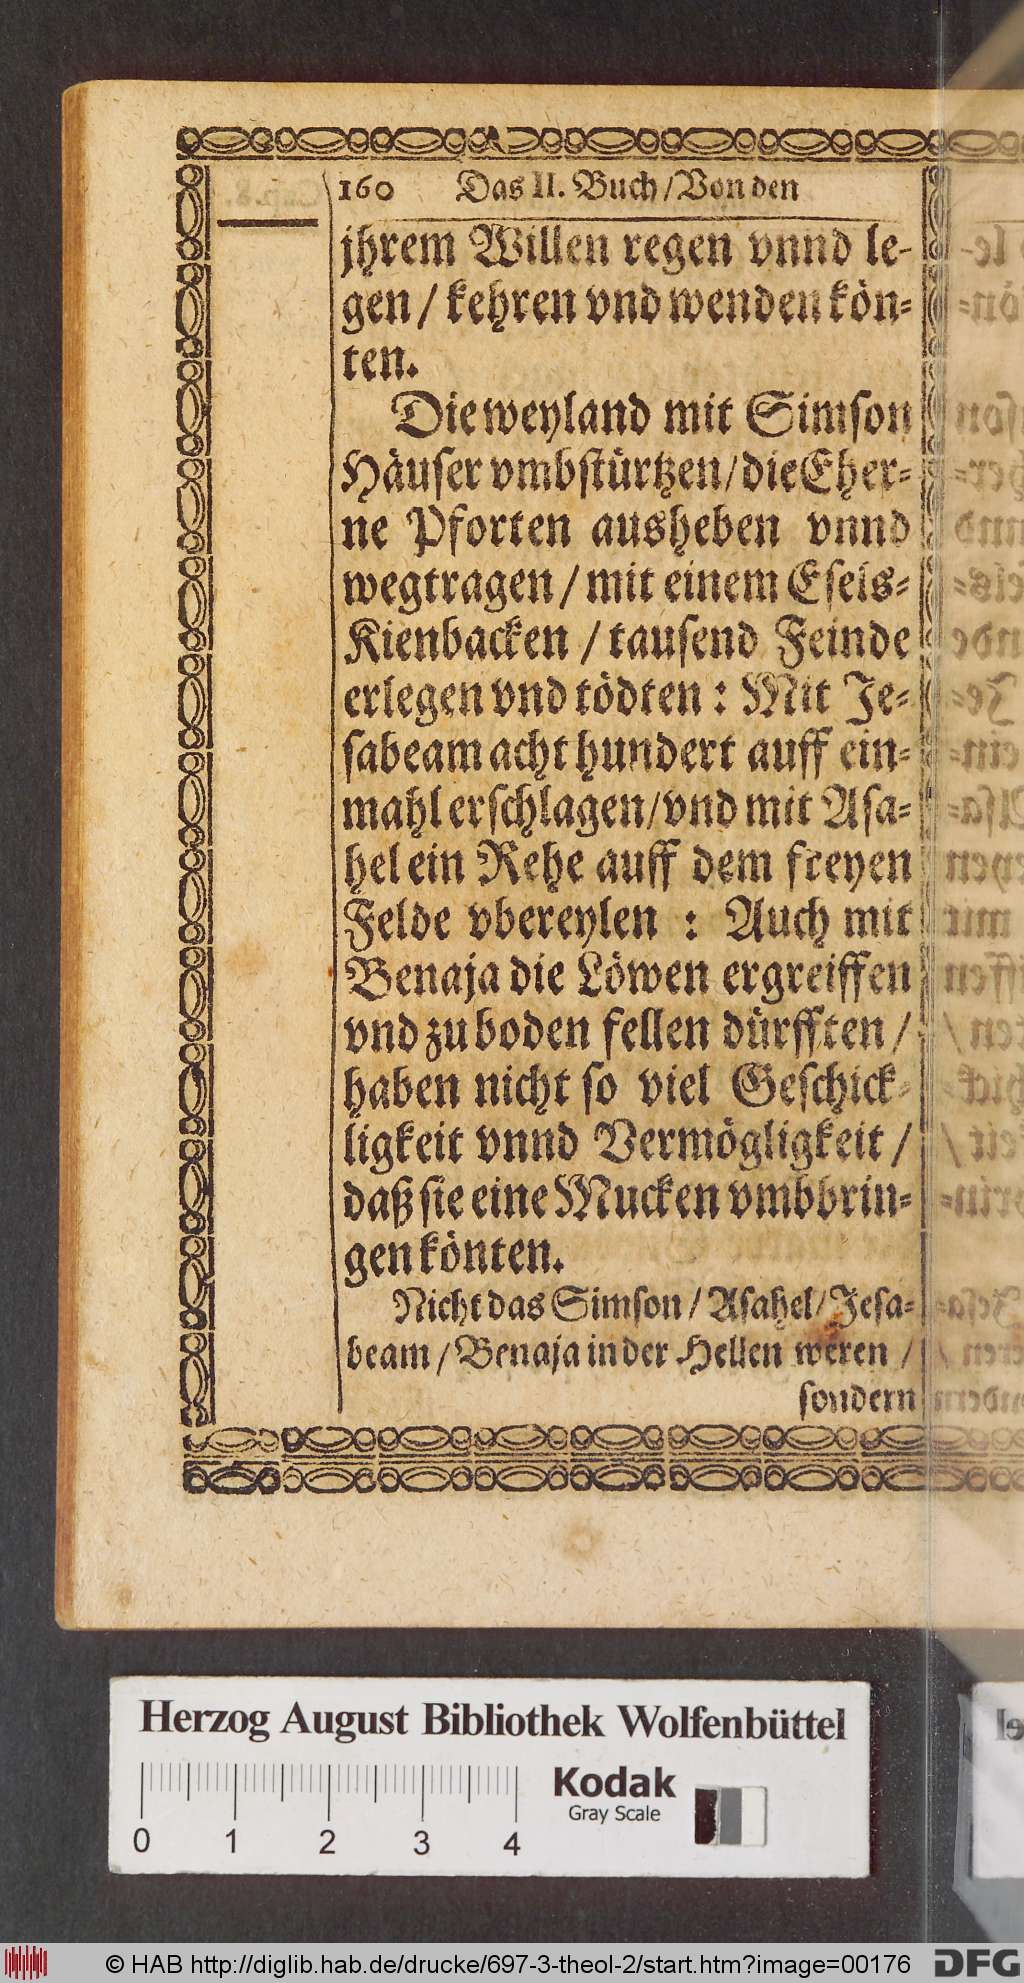 160 Das II. Buch/Von den
jhrem Willen regen vnnd le-
gen/ kehren vnd wenden kön-
ten.
Die weyland mit Simson
Häuser vmbstürtzen/die Eher-
ne Pforten ausheben vnnd
wegtragen/ mit einem Esels-
Kienbacken / tausend Feinde
erlegen vnd tödten: Mit Je-
sabeam acht hundert auff ein-
mahl erschlagen/vnd mit Asa-
hel ein Rehe auff dem freyen
Felde vbereylen : Auch mit
Benaja die Löwen ergreiffen
vnd zu boden fellen dürfften/
haben nicht so viel Geschick-
ligkeit vnnd Vermögligkeit/
daß sie eine Mucken vmbbrin-
gen könten.
Nicht das Simson/ Asahel/ Jesa-
beam/ Benaja in der Hellen weren /
sondern
Herzog August Bibliothek Wolfenbüttel
Kodak
Gray Scale
0 1 2 3 4
© HAB http://diglib.hab.de/drucke/697-3-theol-2/start.htm?image=00176
DFG